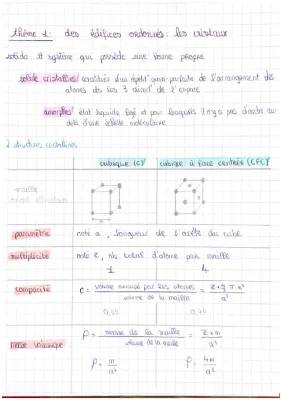 thème 1 : des édifices ordonnés : les cristaux
solide = système qui possède une forme propre
solide cristallin : constitués d'un répétit° quasi-parfaite de l'arrangement des
atomes ds les 3 direct° de l'espace
amorphes : état liquide figé et pour lesquels il n'y a pas d'ordre au-
delà d'une échelle moléculaire
2 structures cristallines
cubique (C) cubique à face centrée (CFC)
maille
paramètre noté a, longueur de l'arête du cube
multiplicité noté z, nb total d'atome par maille
1 4
compacité C = volume occupé par les atomes / volume de la maille = z × 4/3 π r³ / a³
0,52 0,74
masse volumique ρ = masse de la maille / volume de la maille = z × m / a³
ρ = m / a³ ρ = 4m / a³